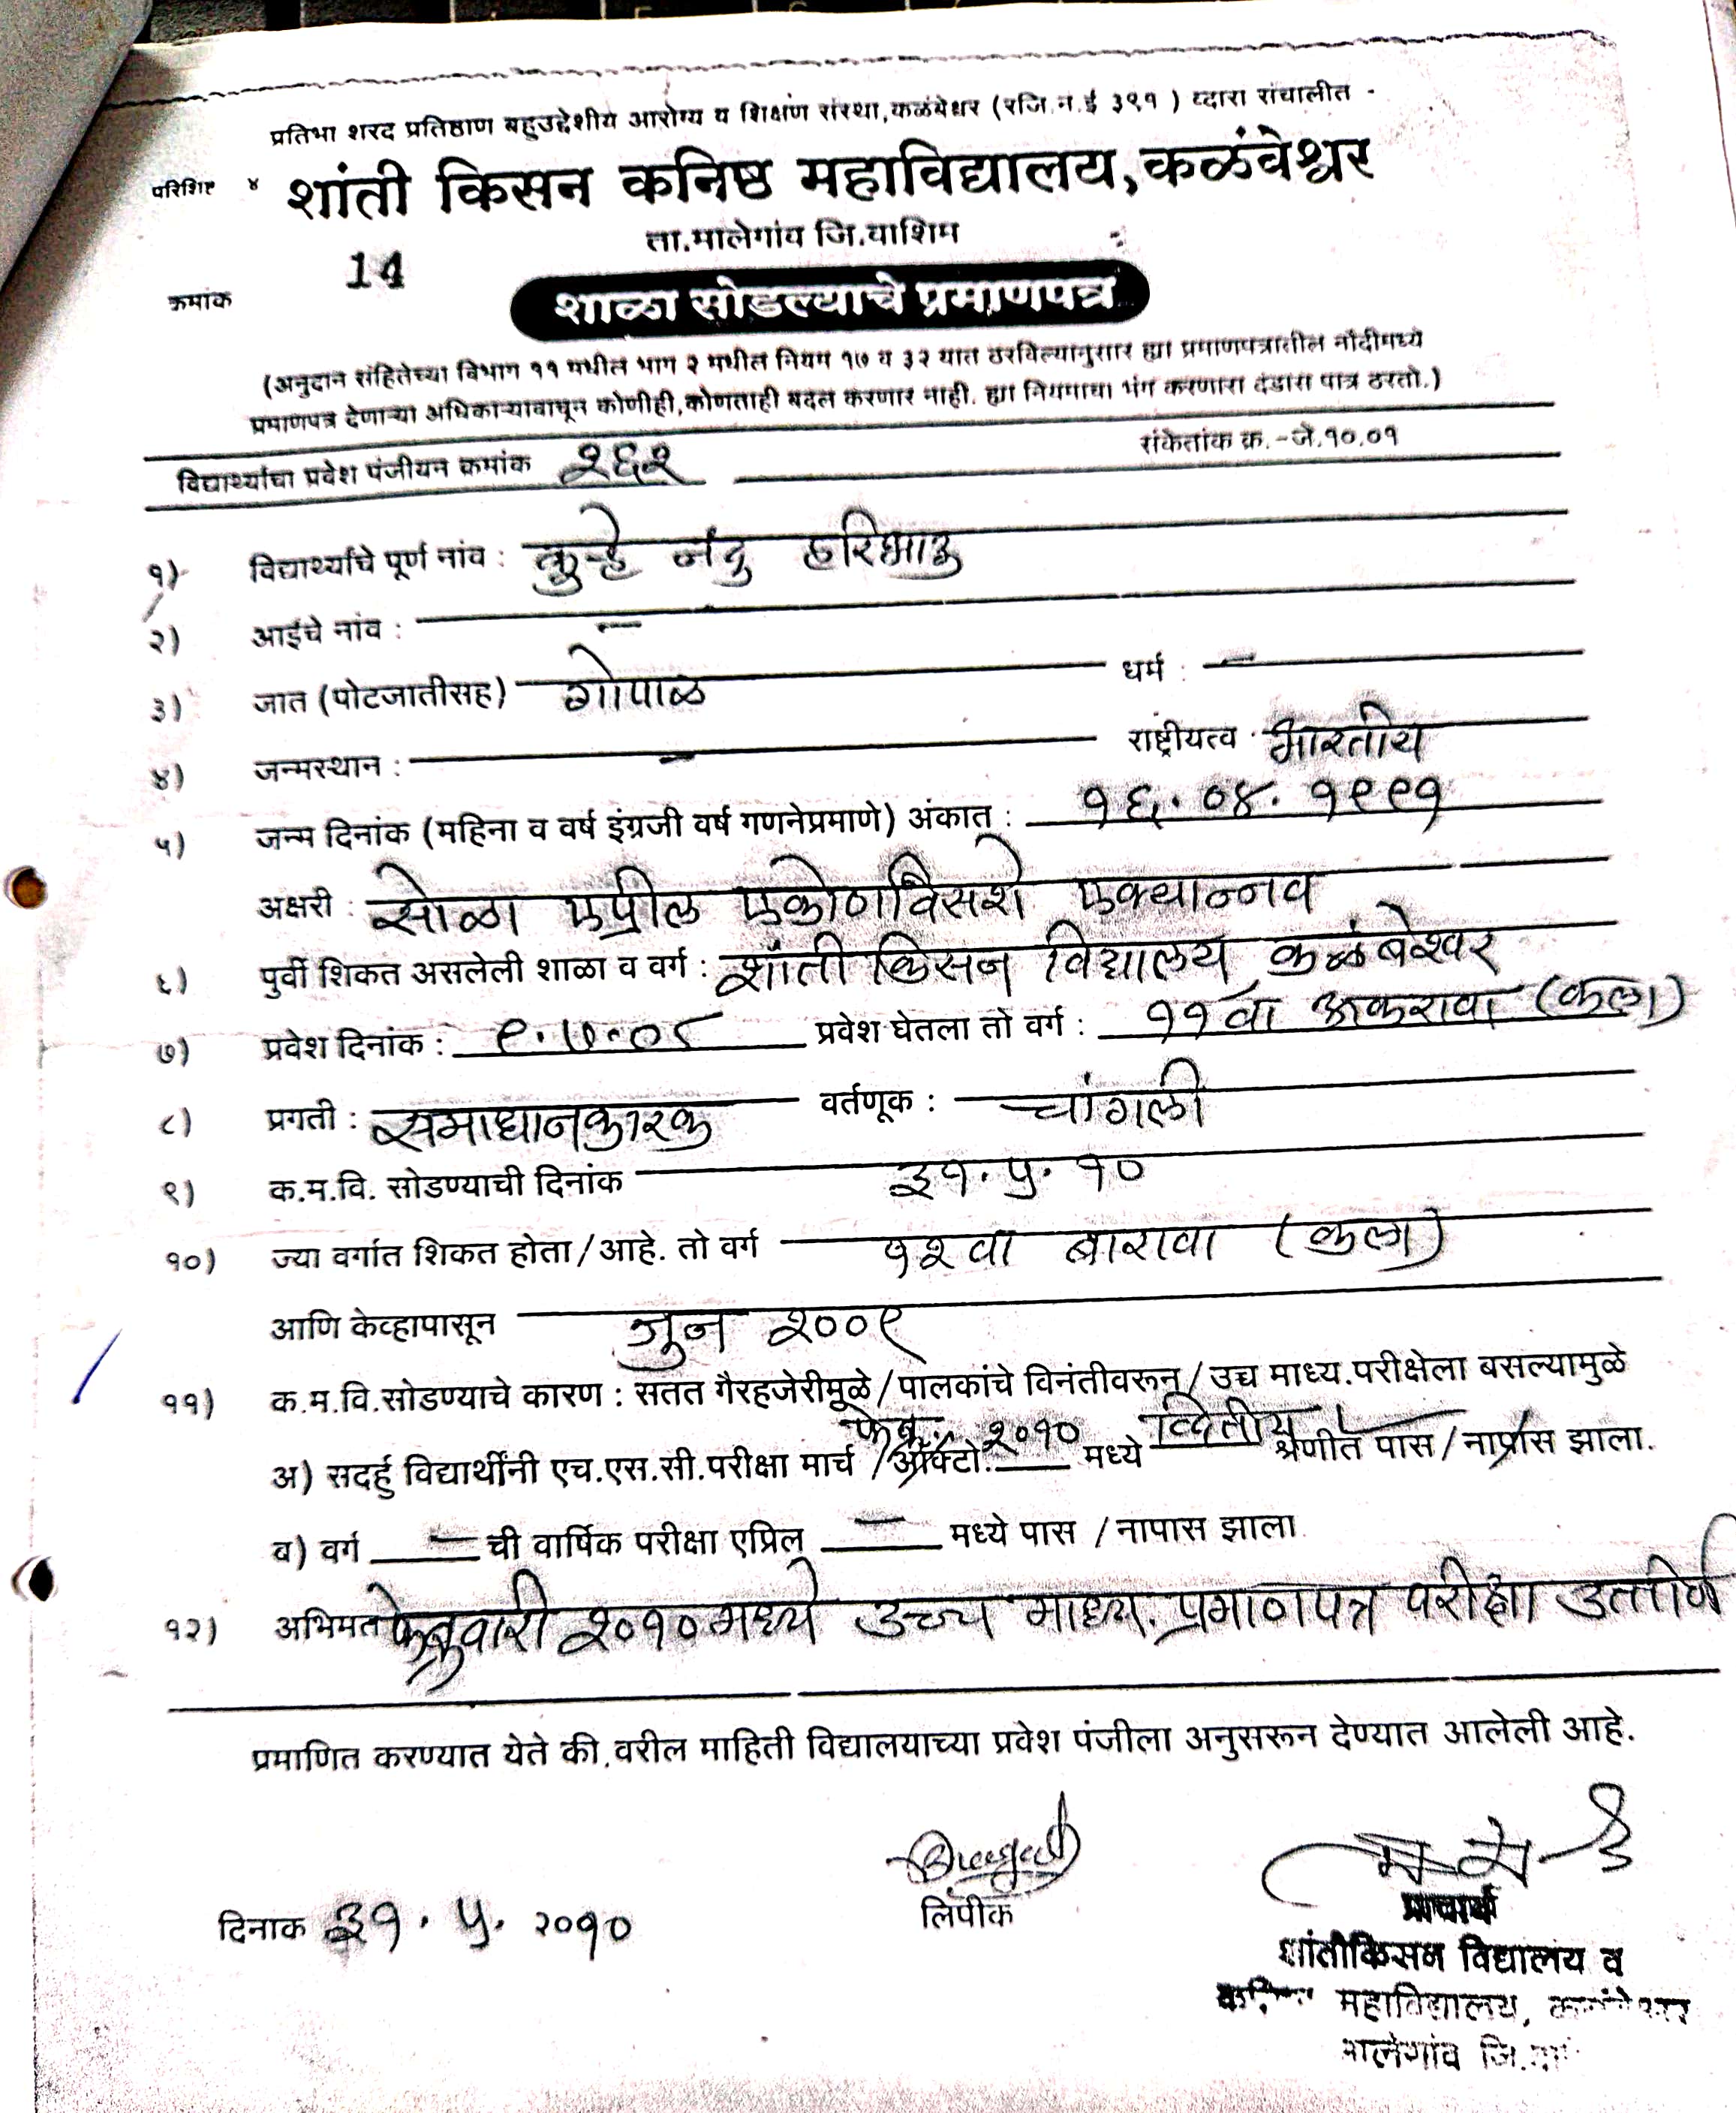 प्रतिभा शरद प्रतिष्ठाण बहुउद्देशीय आरोग्य व शिक्षण संस्था,कळंबेश्वर (रजि.न.ई ३९१ ) व्दारा संचालीत -
परिशिष्ट ४ शांती किसन कनिष्ठ महाविद्यालय,कळंवेश्वर
ता.मालेगांव जि.वाशिम
क्रमांक 14
शाळा सोडल्याचे प्रमाणपत्र
(अनुदान संहितेच्या विभाग ११ मधील भाग २ मधील नियम १७ व ३२ यात ठरविल्यानुसार ह्या प्रमाणपत्रातील नोंदीमध्ये
प्रमाणपत्र देणाऱ्या अधिकाऱ्यावाचून कोणीही,कोणताही बदल करणार नाही. ह्या नियमाचा भंग करणारा दंडास पात्र ठरतो.)
संकेतांक क्र.-जे.१०.०१
विद्यार्थ्याचा प्रवेश पंजीयन क्रमांक २६२
१) विद्यार्थ्याचे पूर्ण नांव : कुऱ्हे नंदु हरिभाऊ
२) आईचे नांव : —
३) जात (पोटजातीसह) गोपाळ धर्म : —
४) जन्मस्थान : — राष्ट्रीयत्व भारतीय
५) जन्म दिनांक (महिना व वर्ष इंग्रजी वर्ष गणनेप्रमाणे) अंकात : १६.०४.१९९१
अक्षरी : सोळा एप्रील एकोणविसशे एक्यान्नव
६) पुर्वी शिकत असलेली शाळा व वर्ग : शांती किसन विद्यालय कळंबेश्वर
७) प्रवेश दिनांक : ९.७.०८ प्रवेश घेतला तो वर्ग : ११वा अकरावा (कला)
८) प्रगती : समाधानकारक वर्तणूक : चांगली
९) क.म.वि. सोडण्याची दिनांक ३१.५.१०
१०) ज्या वर्गात शिकत होता/आहे. तो वर्ग १२वा बारावा (कला)
आणि केव्हापासून जुन २००९
११) क.म.वि.सोडण्याचे कारण : सतत गैरहजेरीमूळे/पालकांचे विनंतीवरून/उच्च माध्य.परीक्षेला बसल्यामुळे
फेब्रु. २०१० व्दितीय
अ) सदर्हु विद्यार्थीनी एच.एस.सी.परीक्षा मार्च /ऑक्टो. मध्ये श्रेणीत पास/नापास झाला.
ब) वर्ग — ची वार्षिक परीक्षा एप्रिल — मध्ये पास /नापास झाला
१२) अभिमत फेब्रुवारी २०१० मध्ये उच्च माध्य. प्रमाणपत्र परीक्षा उत्तीर्ण
प्रमाणित करण्यात येते की,वरील माहिती विद्यालयाच्या प्रवेश पंजीला अनुसरून देण्यात आलेली आहे.
दिनाक ३१.५.२०१०
लिपीक
प्राचार्य
शांतीकिसन विद्यालय व
महाविद्यालय,
मालेगांव जि.